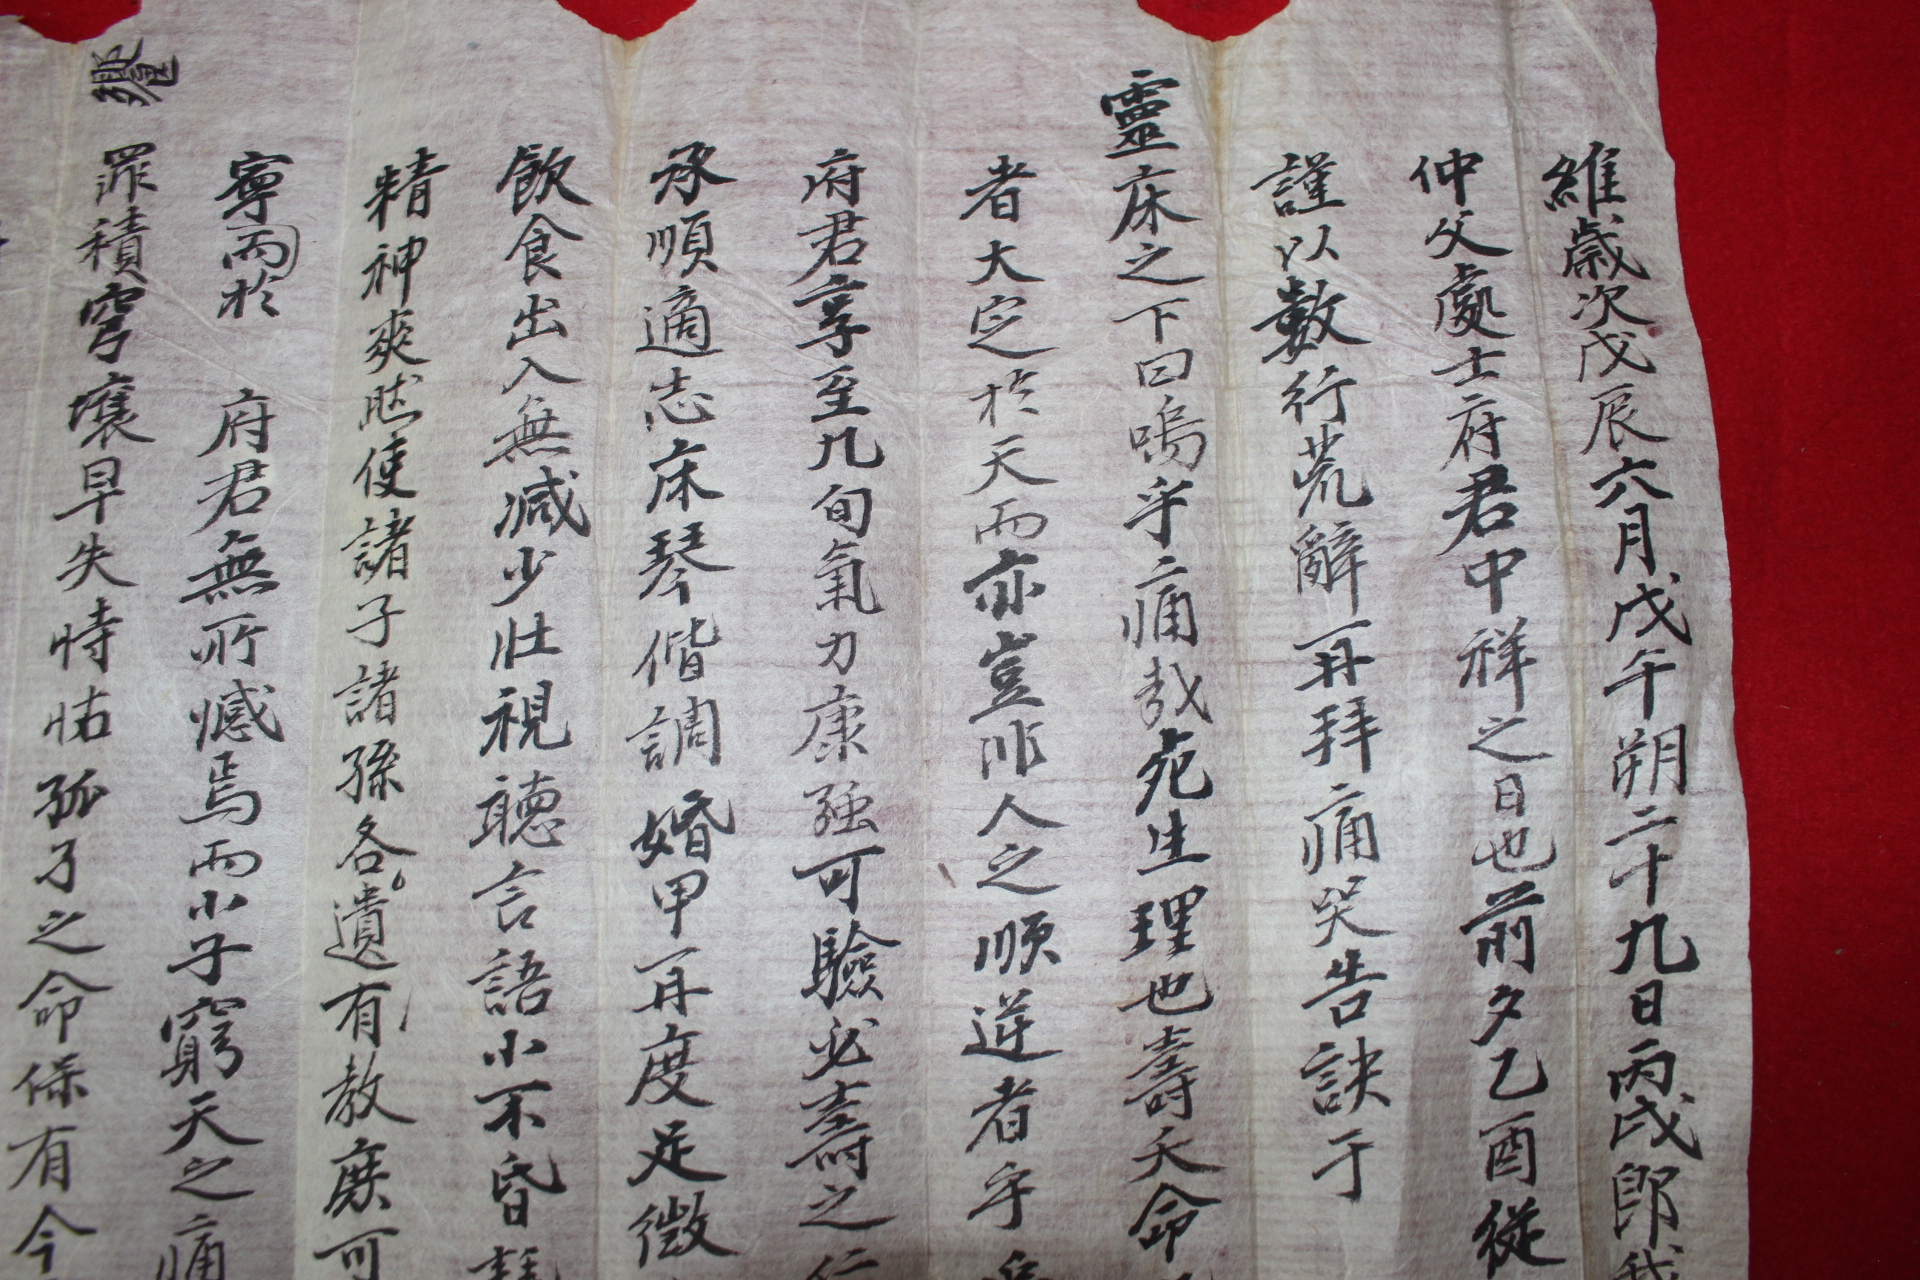 維歲次戊辰六月戊午朔二十九日丙戌郎我
仲父處士府君中祥之日也前夕乙酉從
謹以數行荒辭再拜痛哭告訣于
靈床之下曰嗚乎痛哉死生理也壽夭命
者大定於天而亦豈非人之順逆者乎
府君享至九旬氣力康强可驗必壽之仁
承順適志床琴偕調婚甲再度足徵
飮食出入無减少壯視聽言語小不昏
精神爽然使諸子諸孫各遺有教庶可
寧而於 府君無所憾焉而小子窮天之痛
釁罪積穹壤早失恃怙孤子之命保有今